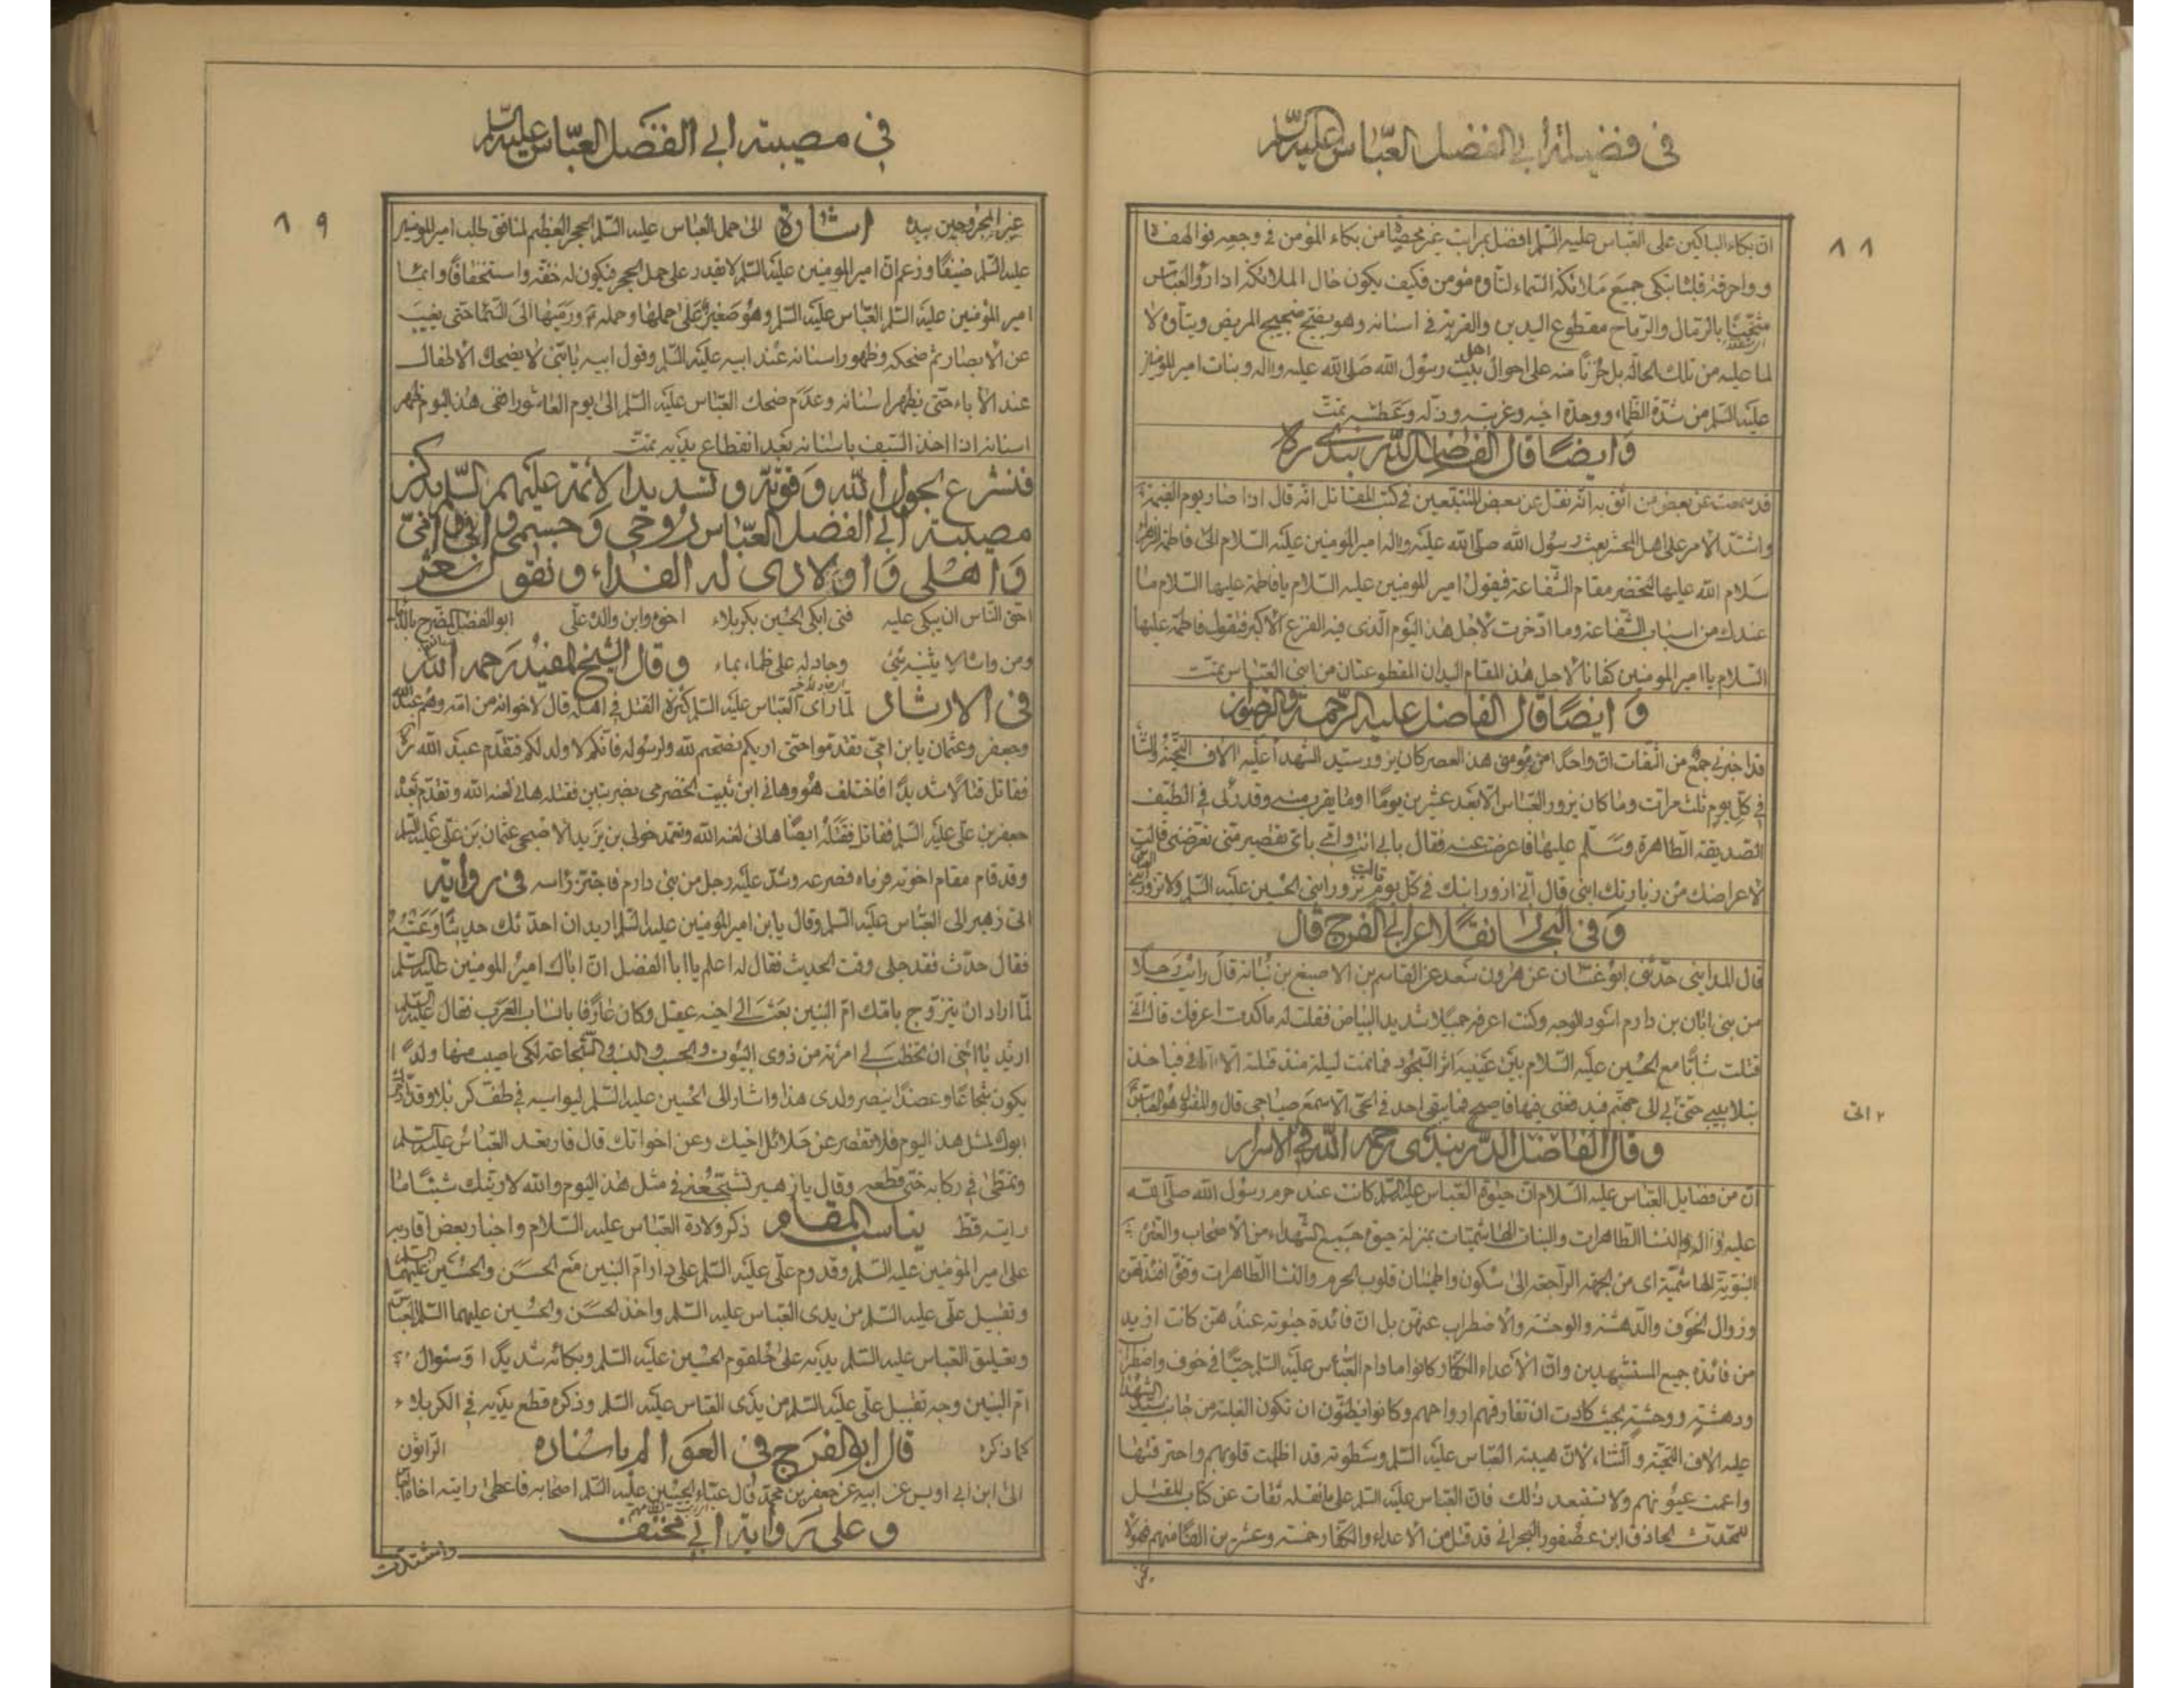 في فضيلة أبي الفضل العبّاس عليه السّلم
٨٨
انّ بكاء الباكين على العبّاس عليه السّلم افضل بمراتب غير محصاة من بكاء المؤمن في وجعه فوا لهفاه
وواحرقة قلباه تبكى جميع ملائكة السّماء لتأوه مؤمن فكيف يكون حال الملائكة اذا رأوا العبّاس
بالنّبال والرّماح مقطوع اليدين والقربة في اسنانه وهو يضجّ ضجيج المريض ويتأوه لا
لما عليه من تلك الحالة بل حزنًا منه على احوال اهل بيت رسول الله صلّى الله عليه واله وبنات امير المؤمنين
عليه السّلم من شدّة الظّماء ووحدة اخيه وغربته وذلّه وعطشه تمّت
وَايضًا قال الفاضل الدّربندي ره
قد سمعت عن بعض من اثق به انّه نقل عن بعض المتتبّعين في كتب المقاتل انّه قال اذا صار يوم القيمة
واشتدّ الامر على اهل المحشر بعث رسول الله صلّى الله عليه واله امير المؤمنين عليه السّلام الى فاطمة الزّهراء
سلام الله عليها لتحضر مقام الشّفاعة فيقول امير المؤمنين عليه السّلام يا فاطمة عليها السّلام ما
عندك من اسباب الشّفاعة وما ادّخرت لاجل هذا اليوم الّذى فيه الفزع الاكبر فتقول فاطمة عليها
السّلام يا امير المؤمنين كفانا لاجل هذا المقام اليدان المقطوعتان من ابنى العبّاس تمّت
وَ ايضًا قال الفاضل عليه الرّحمة والرّضوان
قد اخبرني جمع من الثّقات انّ واحدًا من مؤمنى هذا العصر كان يزور سيّد الشّهدا عليه الاف التّحيّة والثّنا
في كلّ يوم ثلث مرات وما كان يزور العبّاس الّا بعد عشرين يومًا او ما يقرب منه وقد رأى في الطّيف
الصّديقة الطّاهرة وسلّم عليها فاعرضت عنه فقال بابي انت وامّى بايّ تقصير منّى تعرضنى قالت
لاعراضك من زيارتك ابنى قال انّى ازور ابنك في كلّ يوم قالت تزور ابنى الحسين عليه السّلم ولا تزور ابنى العبّاس
وَ فى البحار نقلًا عن ابي الفرج قال
قال المداينى حدّثنى ابو غسّان عن هرون سعد عن القاسم بن الاصبغ بن نباتة قال رايت رجلًا
من بنى ابان بن دارم اسود الوجه وكنت اعرفه جميلًا شديد البياض فقلت له ما كدت اعرفك قال انّى
قتلت شابًّا مع الحسين عليه السّلام بين عينيه اثر السّجود فما نمت ليلة منذ قتلته الّا اتانى فياخذ
بتلابيبى حتّى يأتى بى الى جهنّم فيدفعنى فيها فاصيح فما يبقى احد في الحىّ الّا سمع صياحى قال والمقتول هو العبّاس
٢ اتى
وقال الفاضل الدّربندى رحمه الله في الاسرار
انّ من فضايل العبّاس عليه السّلام انّ حيوة العبّاس عليه السّلم كانت عند حرم رسول الله صلّى الله
عليه واله والنّسا الطّاهرات والبنات الهاشميّات بمنزلة حيوة جميع الشّهداء من الاصحاب والعترة
النّبويّة الهاشميّة اى من الجهة الرّاجعة الى سكون واطمينان قلوب الحرم والنّسا الطّاهرات
وزوال الخوف والدّهشة والوحشة والاضطراب عنهنّ بل انّ فائدة حيوته عندهنّ كانت ازيد
من فائدة جميع المستشهدين وانّ الاعداء الكفّار كانوا مادام العبّاس عليه السّلم حيًّا في خوف واضطراب
ودهشة ووحشة بحيث كادت ان تفارقهم ارواحهم وكانوا يظنّون ان تكون الغلبة من جانب سيّد الشّهدا
عليه الاف التّحيّة والثّناء لانّ هيبة العبّاس عليه السّلم وسطوته قد اظلمت قلوبهم واحترقتها
واعمت عيونهم ولا تستبعد ذلك فانّ العبّاس عليه السّلم على ما نقله ثقات عن كتاب المقتل
للمحدّث الحاذق ابن عصفور البحرانى قد قتل من الاعداء والكفّار خمسة وعشرين الفًا منهم فهؤلاء
غير
في مصيبة ابي الفضل العبّاس عليه السّلم
٨٩
غير المجروحين بيده اشارة الى حمل العباس عليه السّلم الحجر العظيم لمنافق طلب امير المؤمنين
عليه السّلم ضيفًا وزعم انّ امير المؤمنين عليه السّلم لا يقدر على حمل الحجر فيكون له خفّة واستخفافًا
امير المؤمنين عليه السّلم العبّاس عليه السّلم وهو صغير على حملها وحمله ورميها الى السّما حتى يغيب
عن الابصار ثمّ ضحكه وظهور اسنانه عند ابيه عليه السّلم وقول ابيه يا بنىّ لا يضحك الاطفال
عند الاباء حتى يظهر اسنانه وعدم ضحك العبّاس عليه السّلم الى يوم العاشورا ففى هذا اليوم ظهر
اسنانه اذا اخذ السّيف باسنانه بعد انقطاع يديه تمّت
فنشرع بحول الله وقوّته وتسديد الائمّة عليهم السّلم بذكر
مصيبة أبي الفضل العبّاس روحى وجسمى وابى وامّى
وَاهلى وَاولادى له الفداء ونقول شعر
احقّ النّاس ان يبكى عليه فتى ابكى الحسين بكربلاء اخوه وابن والده علّى ابو الفضل المضرّج بالدّماء
ومن واساه لا يثنيه شئ وجاد له على ظماء بماء وقال الشّيخ المفيد رحمه الله
فى الارشاد لمّا راى العبّاس عليه السّلم كثرة القتل في اهله قال لاخوانه من امّه وهم عبد الله
وجعفر وعثمان يا بن امّى تقدّموا حتى اريكم نصحتم لله ولرسوله فانّكم لا ولد لكم فتقدّم عبد الله ره
فقاتل قتالًا شديدًا فاختلف هو وهانى ابن ثبيت الحضرمى بضربتين فقتله هانى لعنه الله وتقدّم بعده
جعفر بن علىّ عليه السّلم فقاتل فقتله ايضًا هانى لعنه الله وتعمّد خولى بن يزيد الاصبحى عثمان بن علىّ عليه السّلم
وقد قام مقام اخوته فرماه فصرعه وشدّ عليه رجل من بنى دارم فاجتزّ رأسه فى رواية
اتى زهير الى العبّاس عليه السّلم وقال يا بن امير المؤمنين عليه السّلم اريد ان احدّثك حديثًا
فقال حدّث فقد حلى وقت الحديث فقال له اعلم يا ابا الفضل انّ اباك امير المؤمنين عليه السّلم
لمّا اراد ان يتزوّج بامّك امّ البنين بعث الى اخيه عقيل وكان عارفًا بانساب العرب فقال عليه السّلم
اريد يا اخى ان تخطب لى امرئة من ذوى البيوت والحسب والنّسب والشّجاعة لكى اصيب منها ولدًا
يكون شجاعًا وعضدًا ينصر ولدى هذا واشار الى الحسين عليه السّلم ليواسيه في طفّ كربلا وقد ادّخرك
ابوك لمثل هذا اليوم فلا تقصر عن حلائل اخيك وعن اخواتك قال فارتعد العبّاس عليه السّلم
وتمطّى في ركابه حتى قطعه وقال يا زهير تشجّعنى في مثل هذا اليوم والله لارينّك شيئًا ما
رايته قطّ يناسب المقام ذكر ولادة العبّاس عليه السّلام واخبار بعض اقاربه
على امير المؤمنين عليه السّلم وقدوم علّى عليه السّلم على دار امّ البنين مع الحسن والحسين عليهما السّلم
وتقبيل علّى عليه السّلم من يدى العبّاس عليه السّلم واخذ الحسن والحسين عليهما السّلم العبّاس
وتعليق العبّاس عليه السّلم يديه على حلقوم الحسين عليه السّلم وبكائه شديدًا وسئوال
امّ البنين وجه تقبيل علّى عليه السّلم من يدى العبّاس عليه السّلم وذكره قطع يديه في الكربلاء
كما ذكره الرّاثون قال ابو الفرج فى العوالم باسناده
الى ابن ابي اويس عن ابيه عن جعفر بن محمّد قال عبّاء الحسين عليه السّلم اصحابه فاعطى رايته اخاه العبّاس
وعلى رواية ابي مخنف
واشتدّت